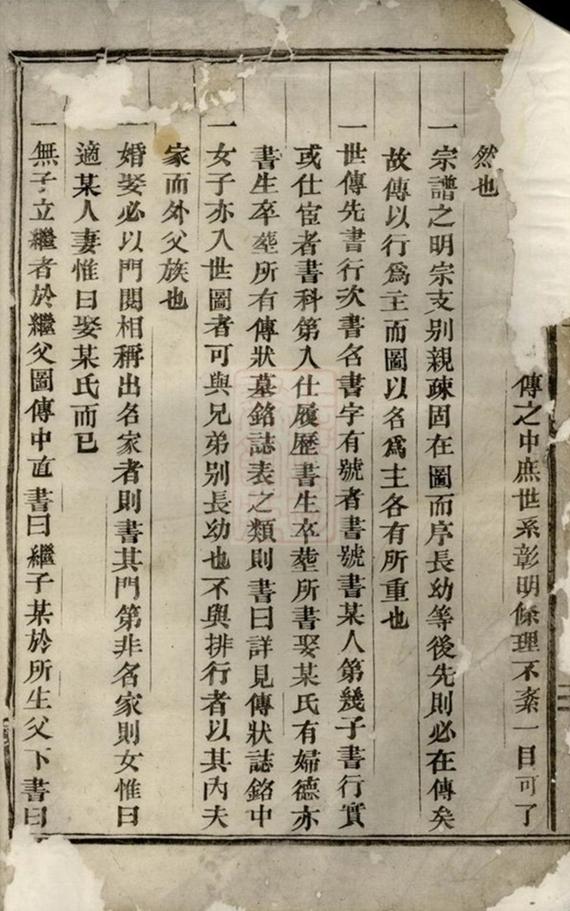 傳之中庶世系彰明條理不紊一目可了
然也
一宗譜之明宗支别親疎固在圖而序長幼等後先則必在傳矣
故傳以行爲主而圖以名爲主各有所重也
一世傳先書行次書名書字有號者書號書某人第幾子書行實
或仕宦者書科第入仕履歷書生卒塟所書娶某氏有婦德亦
書生卒塟所有傳狀墓銘誌表之類則書曰詳見傳狀誌銘中
一女子亦入世圖者可與兄弟别長幼也不與排行者以其内夫
家而外父族也
一婚娶必以門閥相稱出名家者則書其門第非名家則女惟曰
適某人妻惟曰娶某氏而已
一無子立繼者於繼父圖傳中直書曰繼子某於所生父下書曰